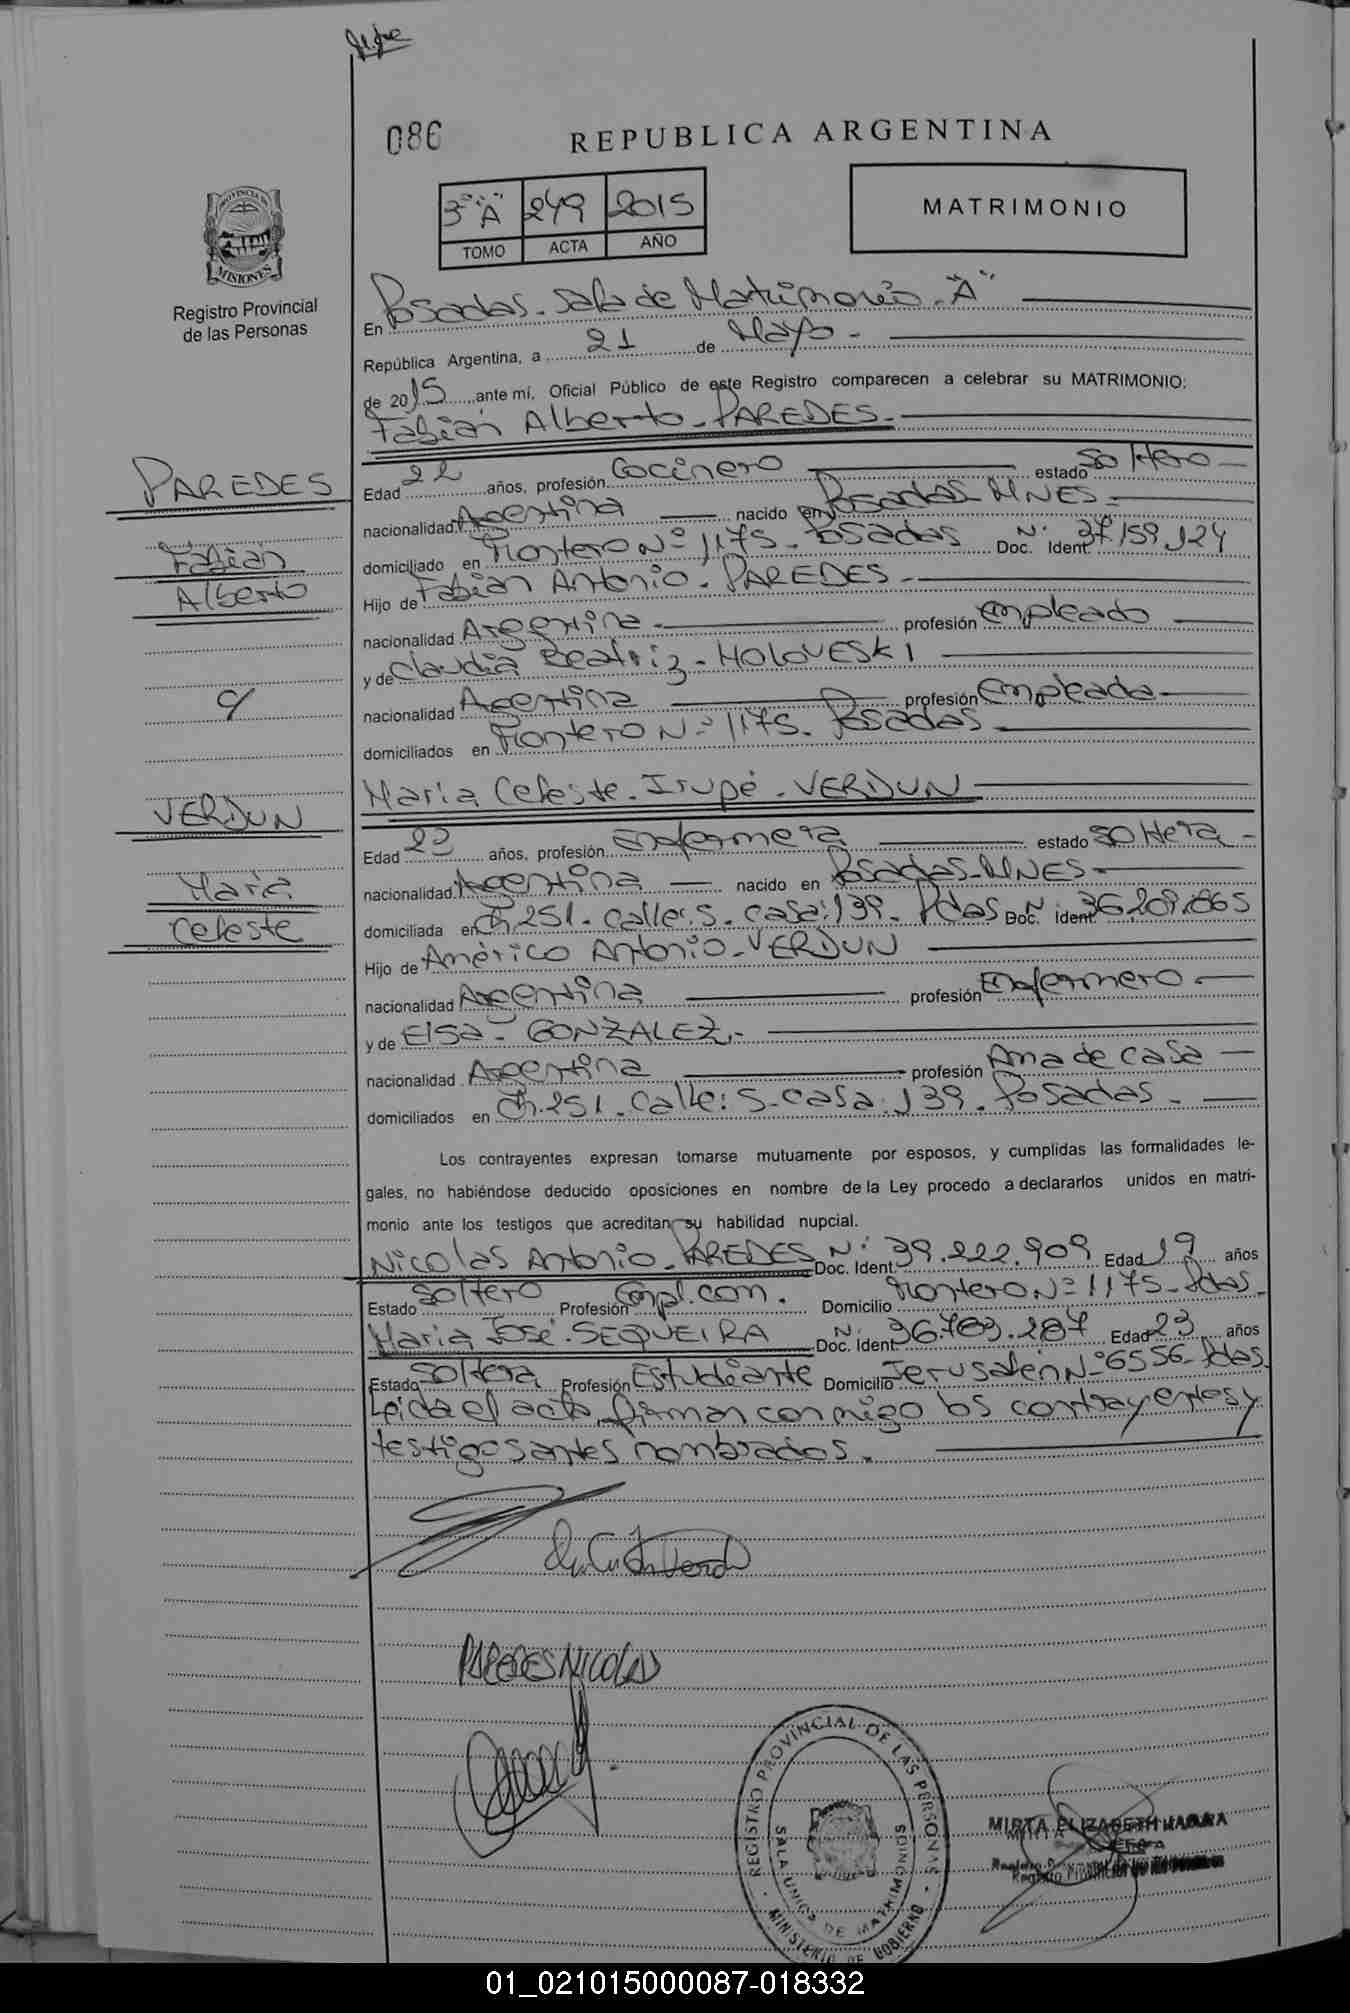 086
REPUBLICA ARGENTINA
3º "A" 249 2015
TOMO ACTA AÑO
MATRIMONIO
PROVINCIA DE
MISIONES
Registro Provincial
de las Personas
En Posadas. Sala de Matrimonio. "A"
República Argentina, a 21 de Mayo.
de 2015 ante mí, Oficial Público de este Registro comparecen a celebrar su MATRIMONIO:
Fabián Alberto. PAREDES.
PAREDES
Fabián
Alberto
c/
VERDUN
Maria
Celeste
Edad 22 años, profesión Cocinero estado soltero
nacionalidad Argentina nacido en Posadas-MNES.
domiciliado en Montero Nº 1175. Posadas Doc. Ident. Nº 37.159.124
Hijo de Fabián Antonio. PAREDES.
nacionalidad Argentina. profesión Empleado
y de Claudia Beatriz. HOLOVESKI
nacionalidad Argentina profesión Empleada
domiciliados en Montero Nº 1175. Posadas.
Maria Celeste. Irupé. VERDUN
Edad 23 años, profesión Enfermera estado soltera
nacionalidad Argentina nacido en Posadas-MNES.
domiciliada en Ch. 251. calle: 5. casa: 139. Pdas Doc. Ident. Nº 36.209.065
Hijo de Américo Antonio. VERDUN
nacionalidad Argentina profesión Enfermero.
y de Elsa. GONZALEZ.
nacionalidad Argentina profesión Ama de casa
domiciliados en Ch. 251. Calle: 5. casa: 139. Posadas.
Los contrayentes expresan tomarse mutuamente por esposos, y cumplidas las formalidades le-
gales, no habiéndose deducido oposiciones en nombre de la Ley procedo a declararlos unidos en matri-
monio ante los testigos que acreditan su habilidad nupcial.
Nicolas Antonio. PAREDES Doc. Ident. Nº 39.222.909 Edad 19 años
Estado Soltero Profesión Empl. com. Domicilio Montero Nº 1175. Pdas.
Maria José. SEQUEIRA Doc. Ident. Nº 36.783.287 Edad 23 años
Estado Soltera Profesión Estudiante Domicilio Jerusalén Nº 6556. Pdas.
Leida el acta firman conmigo los contrayentes y
testigos antes nombrados.
PAREDES NICOLAS
REGISTRO PROVINCIAL DE LAS PERSONAS
SALA UNICA DE MATRIMONIOS
MINISTERIO DE GOBIERNO
MIRTA ELIZABETH
01_021015000087-018332